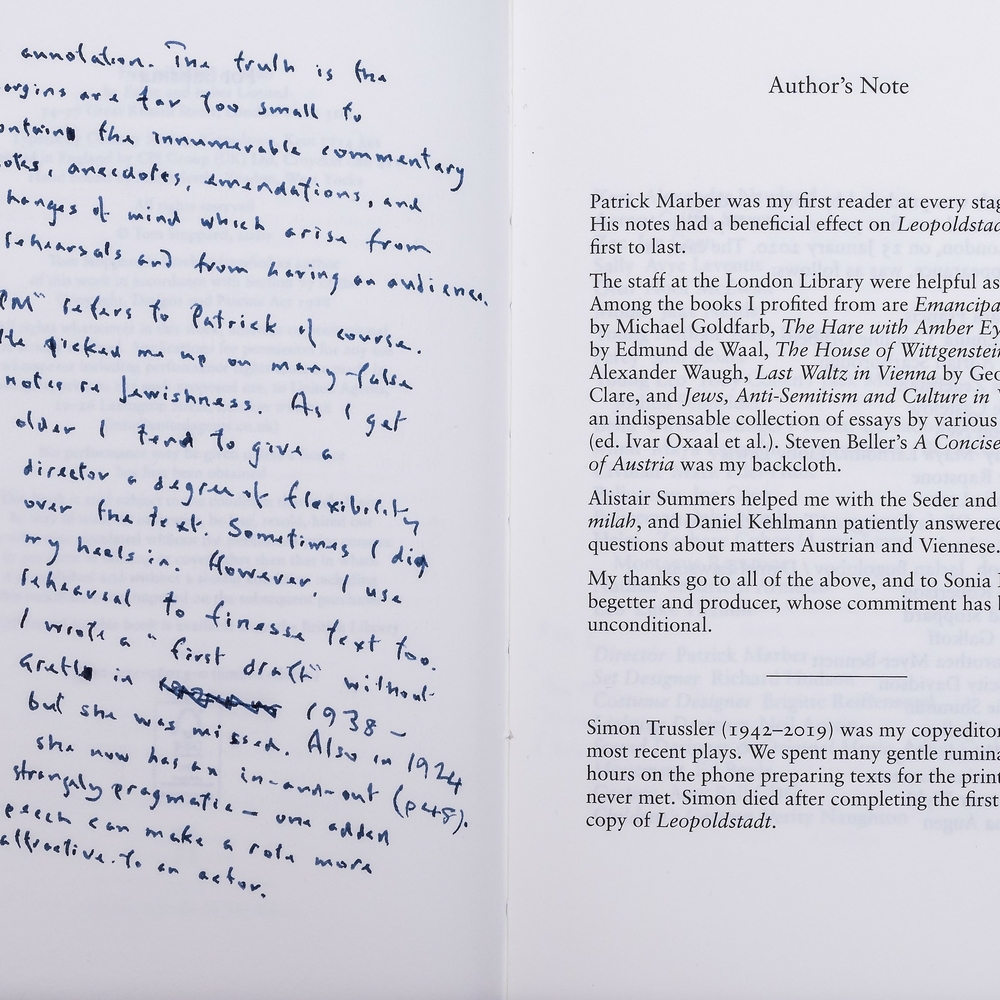 annotation. The truth is the
argins are far too small to
ontain the innumerable commentary
otes, anecdotes, emendations, and
hanges of mind which arise from
rehearsals and from having an audience.
PM" refers to Patrick of course.
He picked me up on many false
notes re Jewishness. As I get
older I tend to give a
director a degree of flexibility
over the text. Sometimes I dig
my heels in. However, I use
rehearsal to finesse text too.
I wrote a "first draft" without
Gretl in 1938 –
but she was missed. Also in 1924
she now has an in-and-out (p48).
strangely pragmatic – one added
peech can make a role more
attractive to an actor.
Author's Note
Patrick Marber was my first reader at every stag
His notes had a beneficial effect on Leopoldstad
first to last.
The staff at the London Library were helpful as
Among the books I profited from are Emancipa
by Michael Goldfarb, The Hare with Amber Ey
by Edmund de Waal, The House of Wittgenstein
Alexander Waugh, Last Waltz in Vienna by Geo
Clare, and Jews, Anti-Semitism and Culture in V
an indispensable collection of essays by various
(ed. Ivar Oxaal et al.). Steven Beller's A Concise
of Austria was my backcloth.
Alistair Summers helped me with the Seder and
milah, and Daniel Kehlmann patiently answered
questions about matters Austrian and Viennese.
My thanks go to all of the above, and to Sonia
begetter and producer, whose commitment has
unconditional.
Simon Trussler (1942–2019) was my copyeditor
most recent plays. We spent many gentle rumina
hours on the phone preparing texts for the print
never met. Simon died after completing the first
copy of Leopoldstadt.